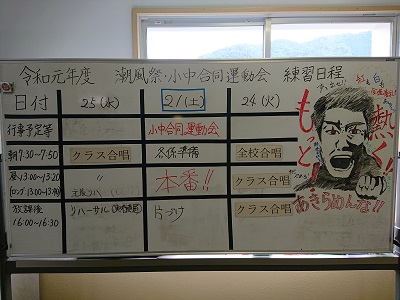 令和元年度 潮風祭・小中合同運動会 練習日程
日付 25(水) 21(土) 24(火)
行事予定等 小中合同運動会
朝7:30~7:50 クラス合唱 各係準備 全校合唱
昼13:00~13:20 〃 本番!! クラス合唱
(ロング 13:00~13:40) クラス合唱
放課後 リハーサル 片づけ クラス合唱
16:00~16:30
もっと!
熱く!!
あきらめんな!!